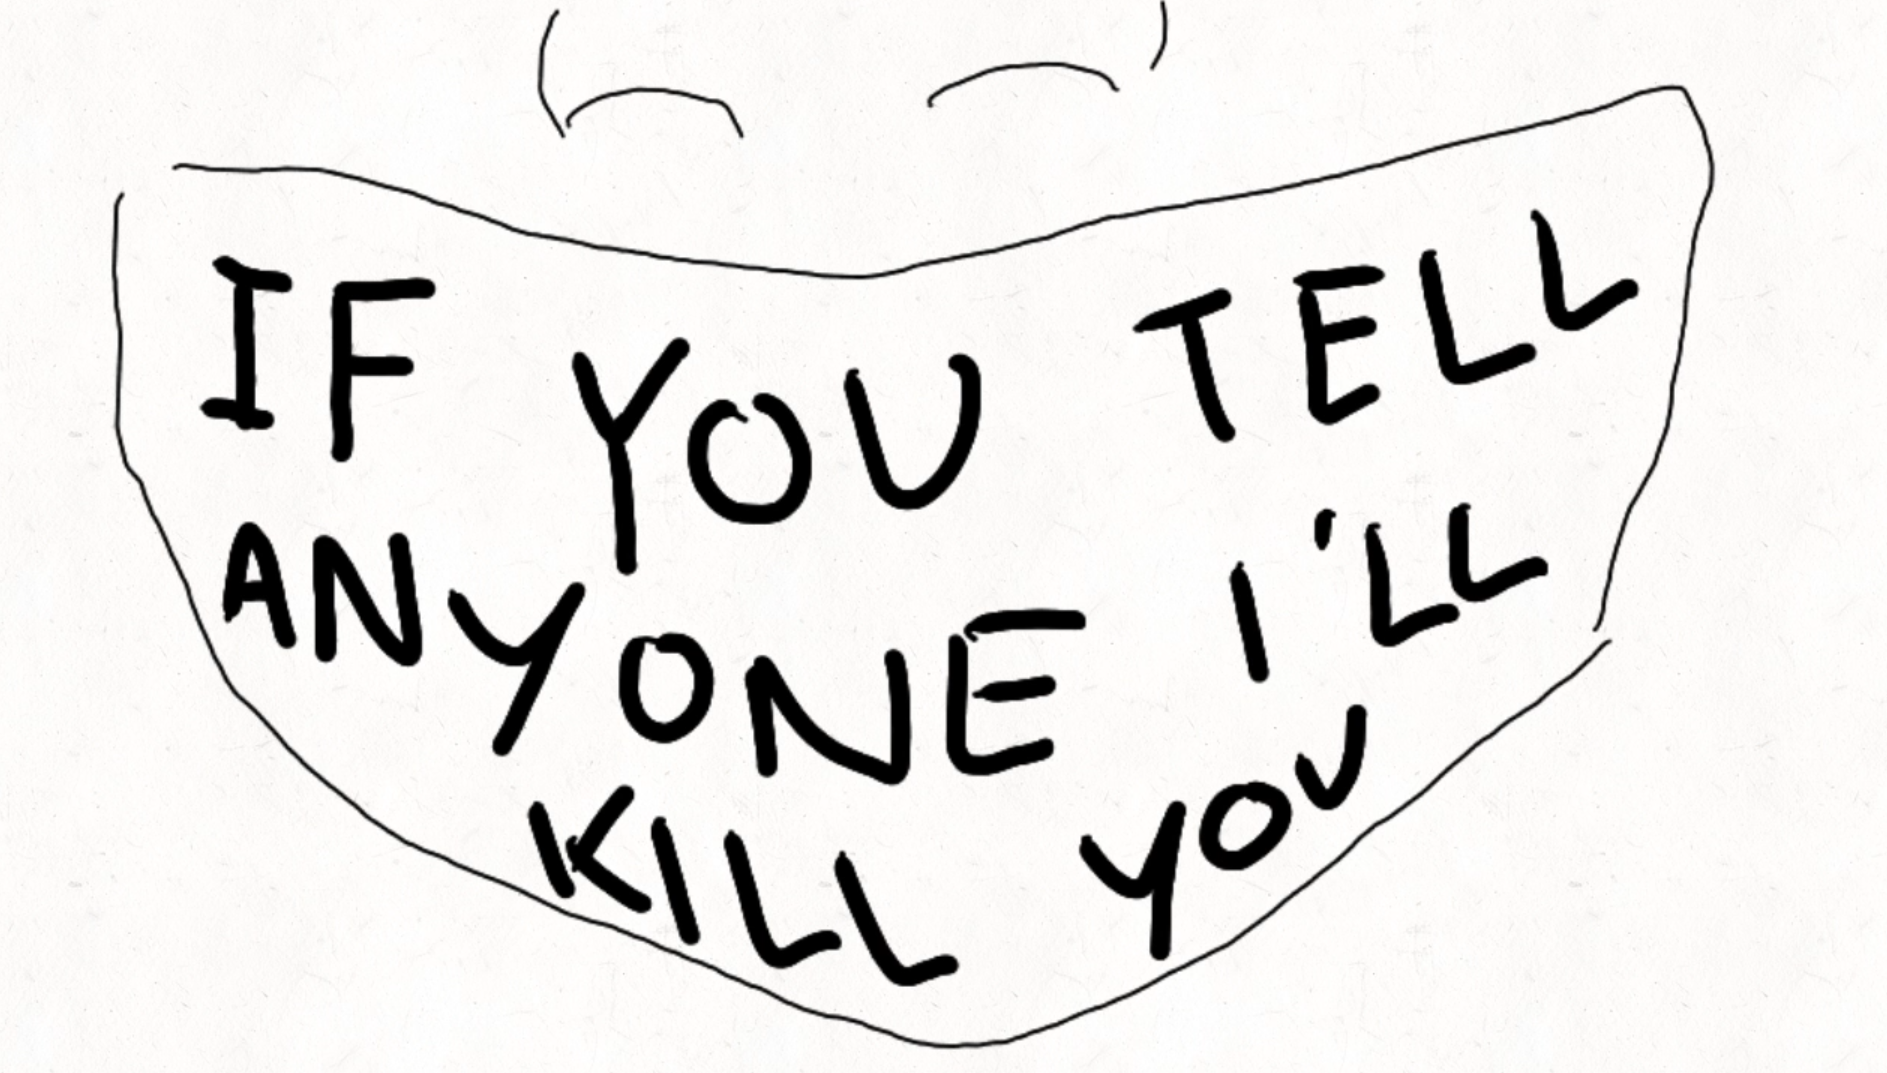 IF YOU TELL
ANYONE I'LL
KILL YOU